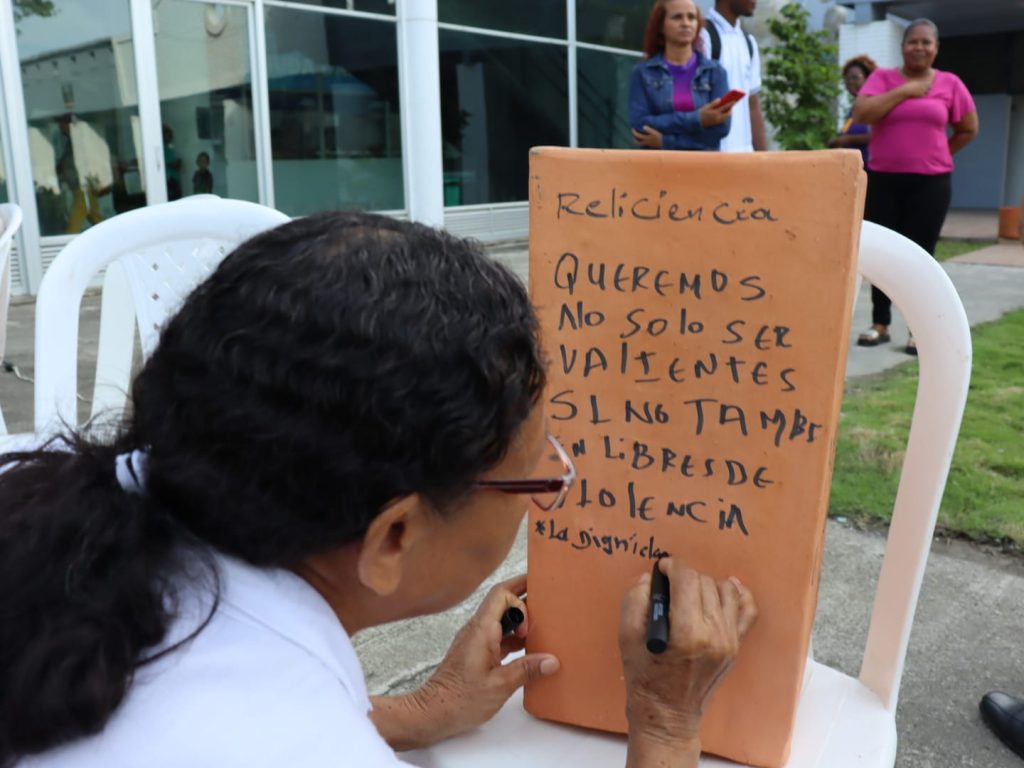 Reliciencia
QUEREMOS
No Solo SER
VALIENTES
SINO TAMBI
EN LIBRES DE
VIOLENCIA
*La Dignida